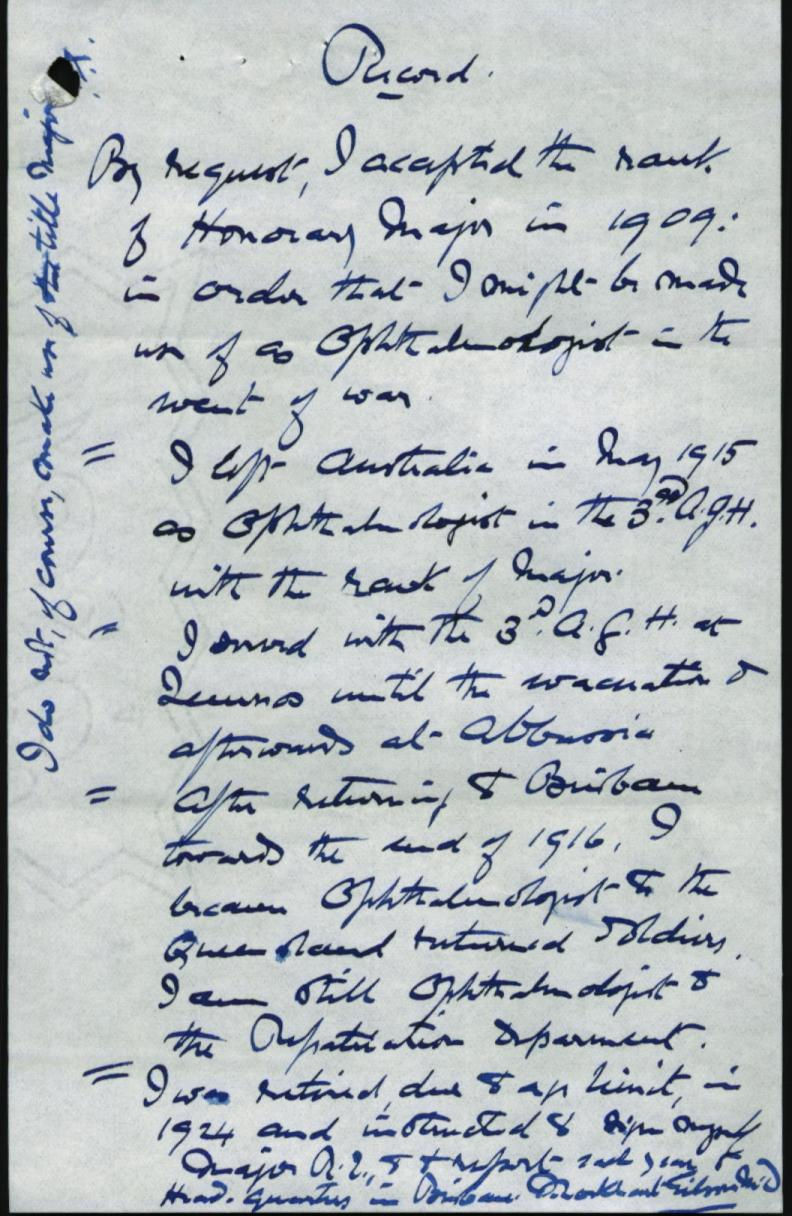 Record.
By request, I accepted the rank
of Honorary Major in 1909:
in order that I might be made
use of as Ophthalmologist in the
event of war.
= I left Australia in May 1915
as Ophthalmologist in the 3rd. A.G.H.
with the rank of Major.
" I served with the 3rd. A.G.H. at
Lemnos until the evacuation &
afterwards at Abbassia
= After returning to Brisbane
towards the end of 1916, I
became Ophthalmologist to the
Queensland returned Soldiers.
I am still Ophthalmologist to
the Repatriation Deparment.
= I was retired, due to age limit, in
1924 and instructed to sign myself
Major R.L., & to report each year to
Head-quarters in Brisbane. J Lockhart Gibson M.D
I do not, of course, make use of the title Major